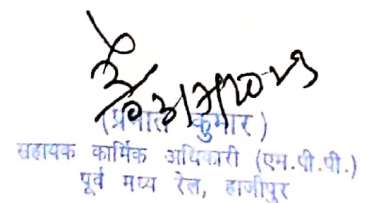 (प्रभात कुमार)
सहायक कार्मिक अधिकारी (एम.पी.पी.)
पूर्व मध्य रेल, हाजीपुर